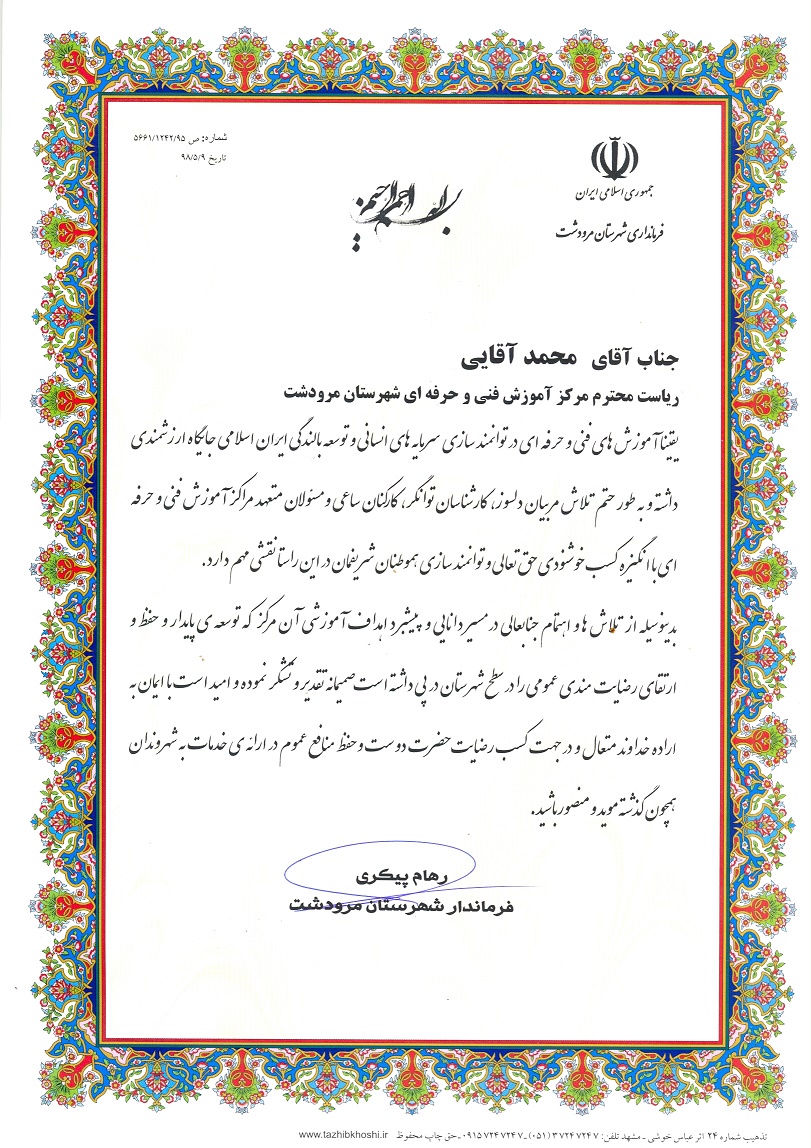 شماره: ص ۵۶۶۱/۱۲۴۲/۹۵
تاریخ ۹۸/۵/۹
جمهوری اسلامی ایران
فرمانداری شهرستان مرودشت
بسم الله الرحمن الرحیم
جناب آقای محمد آقایی
ریاست محترم مرکز آموزش فنی و حرفه ای شهرستان مرودشت
یقیناً آموزش های فنی و حرفه ای در توانمند سازی سرمایه های انسانی و توسعه بالندگی ایران اسلامی جایگاه ارزشمندی
داشته و به طور حتم تلاش مربیان دلسوز، کارشناسان توانگر، کارکنان ساعی و مسئولان متعهد مراکز آموزش فنی و حرفه
ای با انگیزه کسب خوشنودی حق تعالی و توانمند سازی هموطنان شریفمان در این راستا نقشی مهم دارد.
بدینوسیله از تلاش ها و اهتمام جنابعالی در مسیر دانایی و پیشبرد اهداف آموزشی آن مرکز که توسعه ی پایدار و حفظ و
ارتقای رضایت مندی عمومی را در سطح شهرستان در پی داشته است صمیمانه تقدیر و تشکر نموده و امید است با ایمان به
اراده خداوند متعال و در جهت کسب رضایت حضرت دوست و حفظ منافع عموم در ارائه ی خدمات به شهروندان
همچون گذشته موید و منصور باشید.
رهام پیکری
فرماندار شهرستان مرودشت
تذهیب شماره ۲۴ اثر عباس خوشی - مشهد تلفن: ۳۷۲۴۷۲۴۷ (۰۵۱) - ۰۹۱۵۷۲۴۷۲۴۷ - حق چاپ محفوظ www.tazhibkhoshi.ir